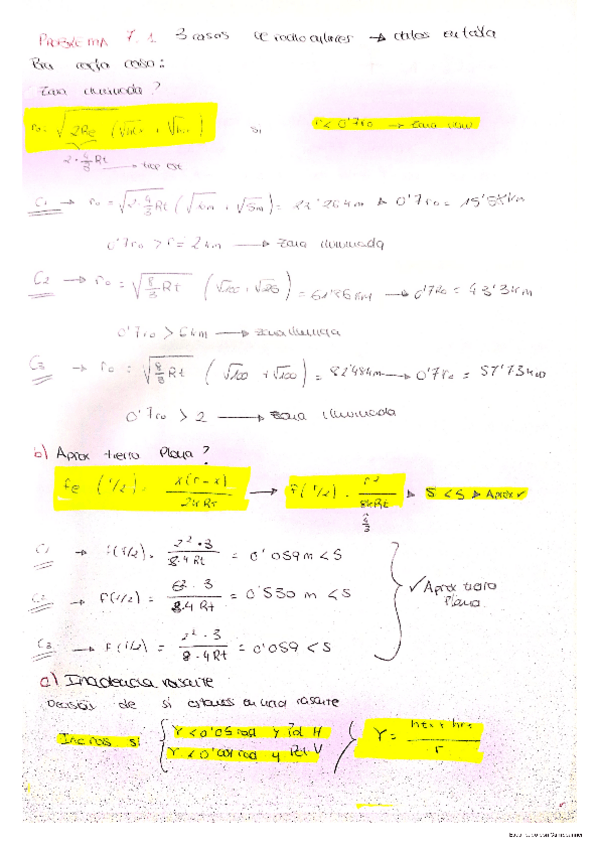 PROBLEMA 7.1 3 casos de radio enlaces → datos en tabla
Para cada caso:
Zona iluminada?
r₀ = √2Re (√htx + √hrx) si r < 0'7r₀ → zona ilum
2·4/3 Rt
C1 → r₀ = √2·4/3 Rt (√ + √5m) = 22'264km → 0'7r₀ = 15'
0'7r₀ > r = 2km → zona iluminada
C2 → r₀ = √8/3 Rt ( + √25) = 61' km → 0'7r₀ = 43'3km
0'7r₀ > 6km → zona iluminada
C3 → r₀ = √8/3 Rt (√100 + √100) = 82'48km → 0'7r₀ = 57'73km
0'7r₀ > 2 → zona iluminada
b) Aprox tierra Plana?
fe (r/2) = x(r-x)/2kRt → f(r/2) = r²/8kRt → S < 5 → Aprox ✓
4/3
C1 → f(r/2) = 2²·3/8·4Rt = 0'059m < 5
C2 → f(r/2) = 6²·3/8·4Rt = 0'530 m < 5 ✓ Aprox tierra Plana
C3 → f(r/2) = 2²·3/8·4Rt = 0'059 < 5
c) Incidencia rasante
Decisión de si estamos en una rasante
Incras si γ < 0'05 rad y Pol H
γ < rad y Pol V γ = htx + hrx/r